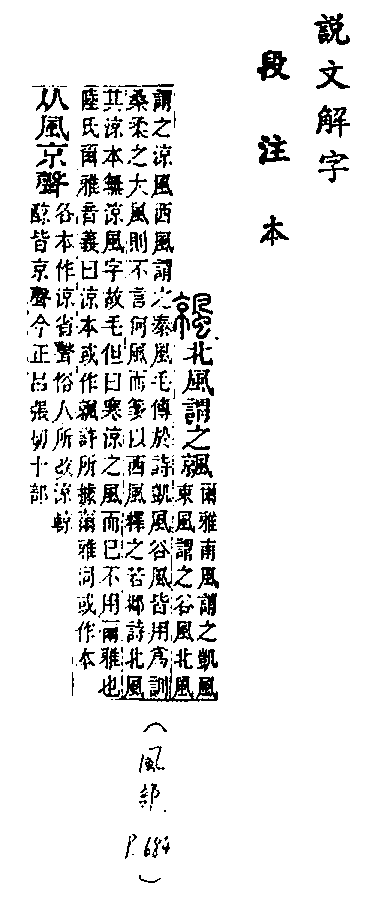 説文解字
段注本
北風謂之飆爾雅南風謂之凱風
東風謂之谷風北風
謂之涼風西風謂之泰風毛傳於詩凱風谷風皆用爲訓
桑柔之大風則不言何風而箋以西風釋之若邶詩北風
其涼本無涼風字故毛但曰寒涼之風而已不用爾雅也
陸氏爾雅音義曰涼本或作飆許所據爾雅同或作本
从風京聲各本作涼省聲俗人所改涼輬
諒皆京聲今正呂張切十部
(風部
P.684)